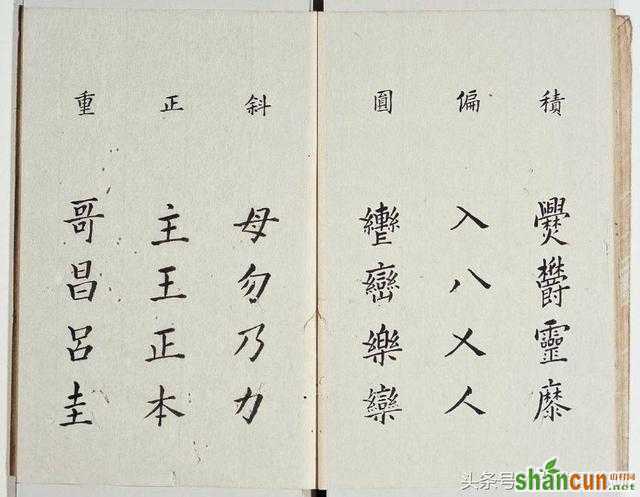 積 爨鬱靈
偏 入八乂人
圓 巒樂欒
斜 母勿乃力
正 主王正本
重 哥昌呂圭
头条号
shancun
.net